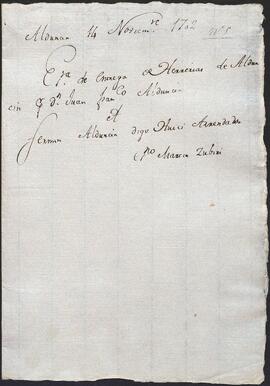 Aldunan 14 Noviem.re 1702 Nº 5
C.ra de Entrega de Herrerias de Aldun
cin q.e D.n Juan fran.co Aldunci
A
Fermin Alduncin digo Arrendador
P.o Martin Zubiri